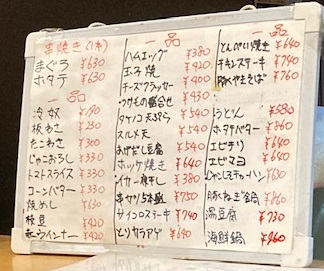 串焼き(1本)
まぐろ ¥630
ホタテ ¥630
一品
冷奴 ¥190
板わさ ¥230
たこわさ ¥300
じゃこおろし ¥330
トマトスライス ¥330
コーンバター ¥330
焼めし ¥630
枝豆 ¥420
赤ウインナー ¥420
一品
ハムエッグ ¥380
玉子焼 ¥420
チーズクラッカー ¥430
つけもの盛合せ ¥430
タケノコ天ぷら ¥540
スルメ天 ¥540
あげだし豆腐 ¥540
ホッケ焼き ¥640
イカ一夜干し ¥380
串カツ5本盛 ¥750
サイコロステーキ ¥740
とりカラアゲ ¥640
一品
とんぺい焼き ¥640
チキンステーキ ¥740
豚やきそば ¥760
うどん ¥580
ホタテバター ¥860
エビチリ ¥640
エビマヨ ¥640
¥630
豚くねぎ鍋 ¥860
湯豆腐 ¥730
海鮮鍋 ¥960